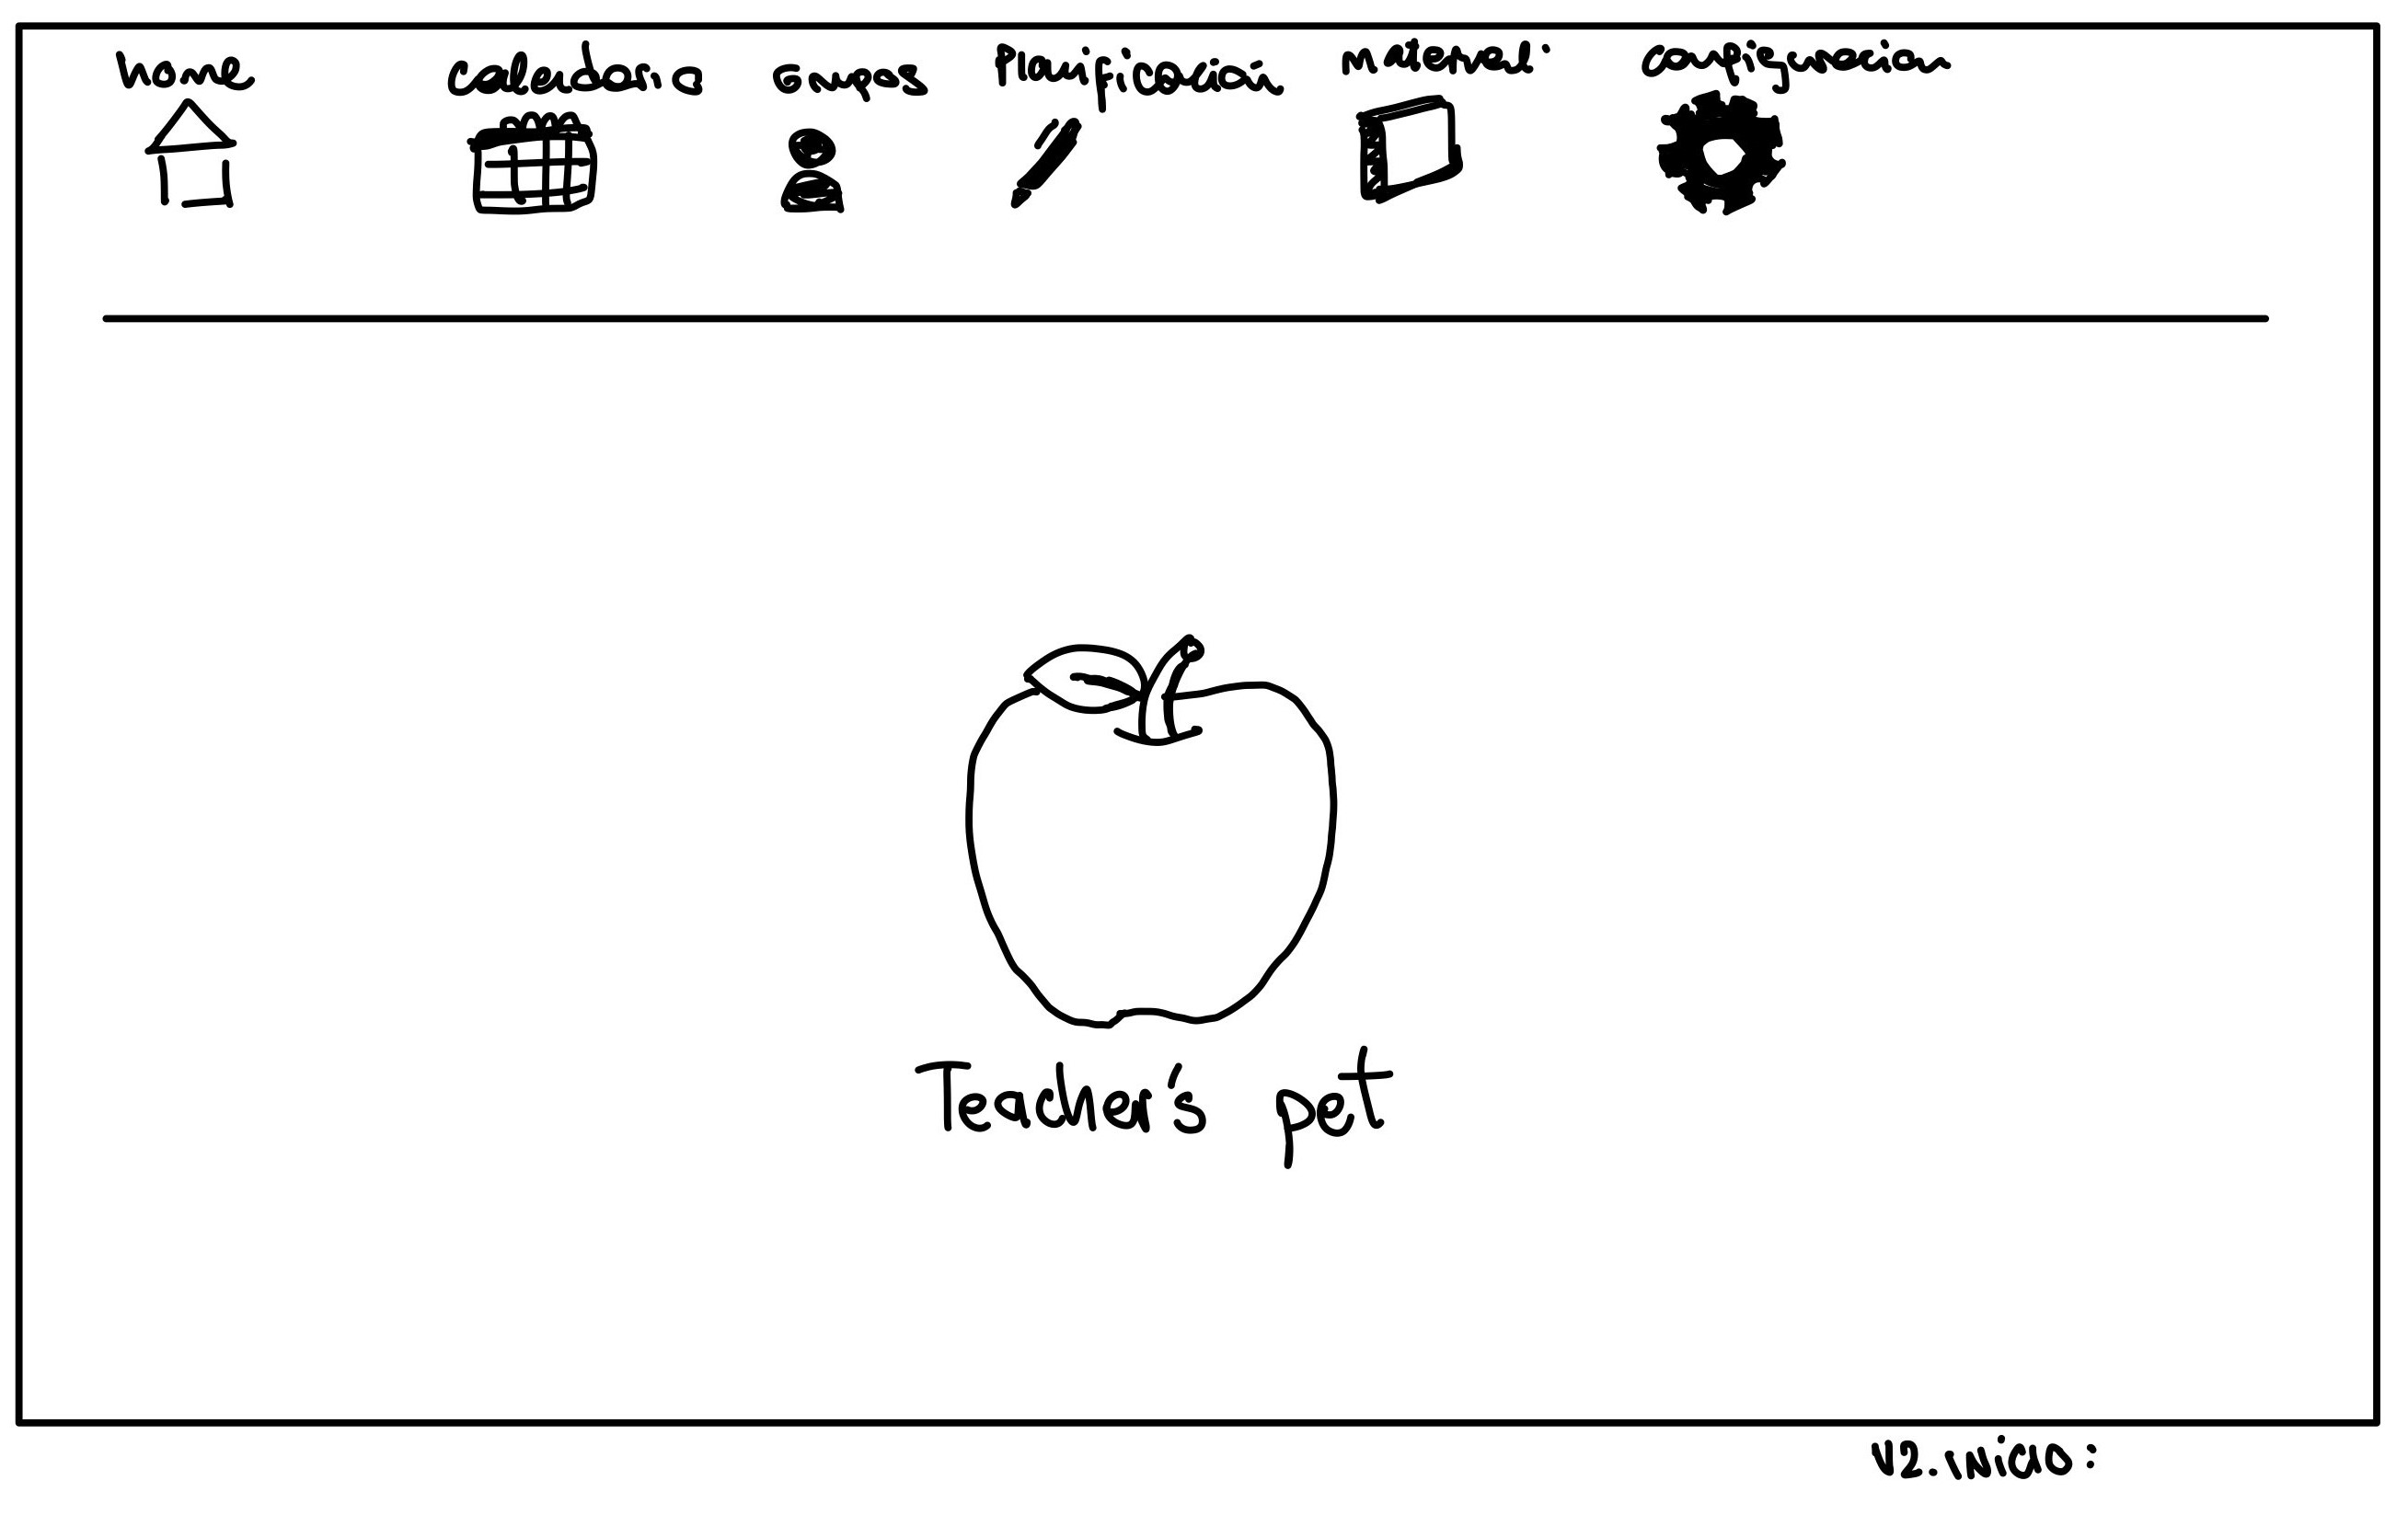 home calendario grupos Planificación material configuración
Teacher's pet
V2. inicio: